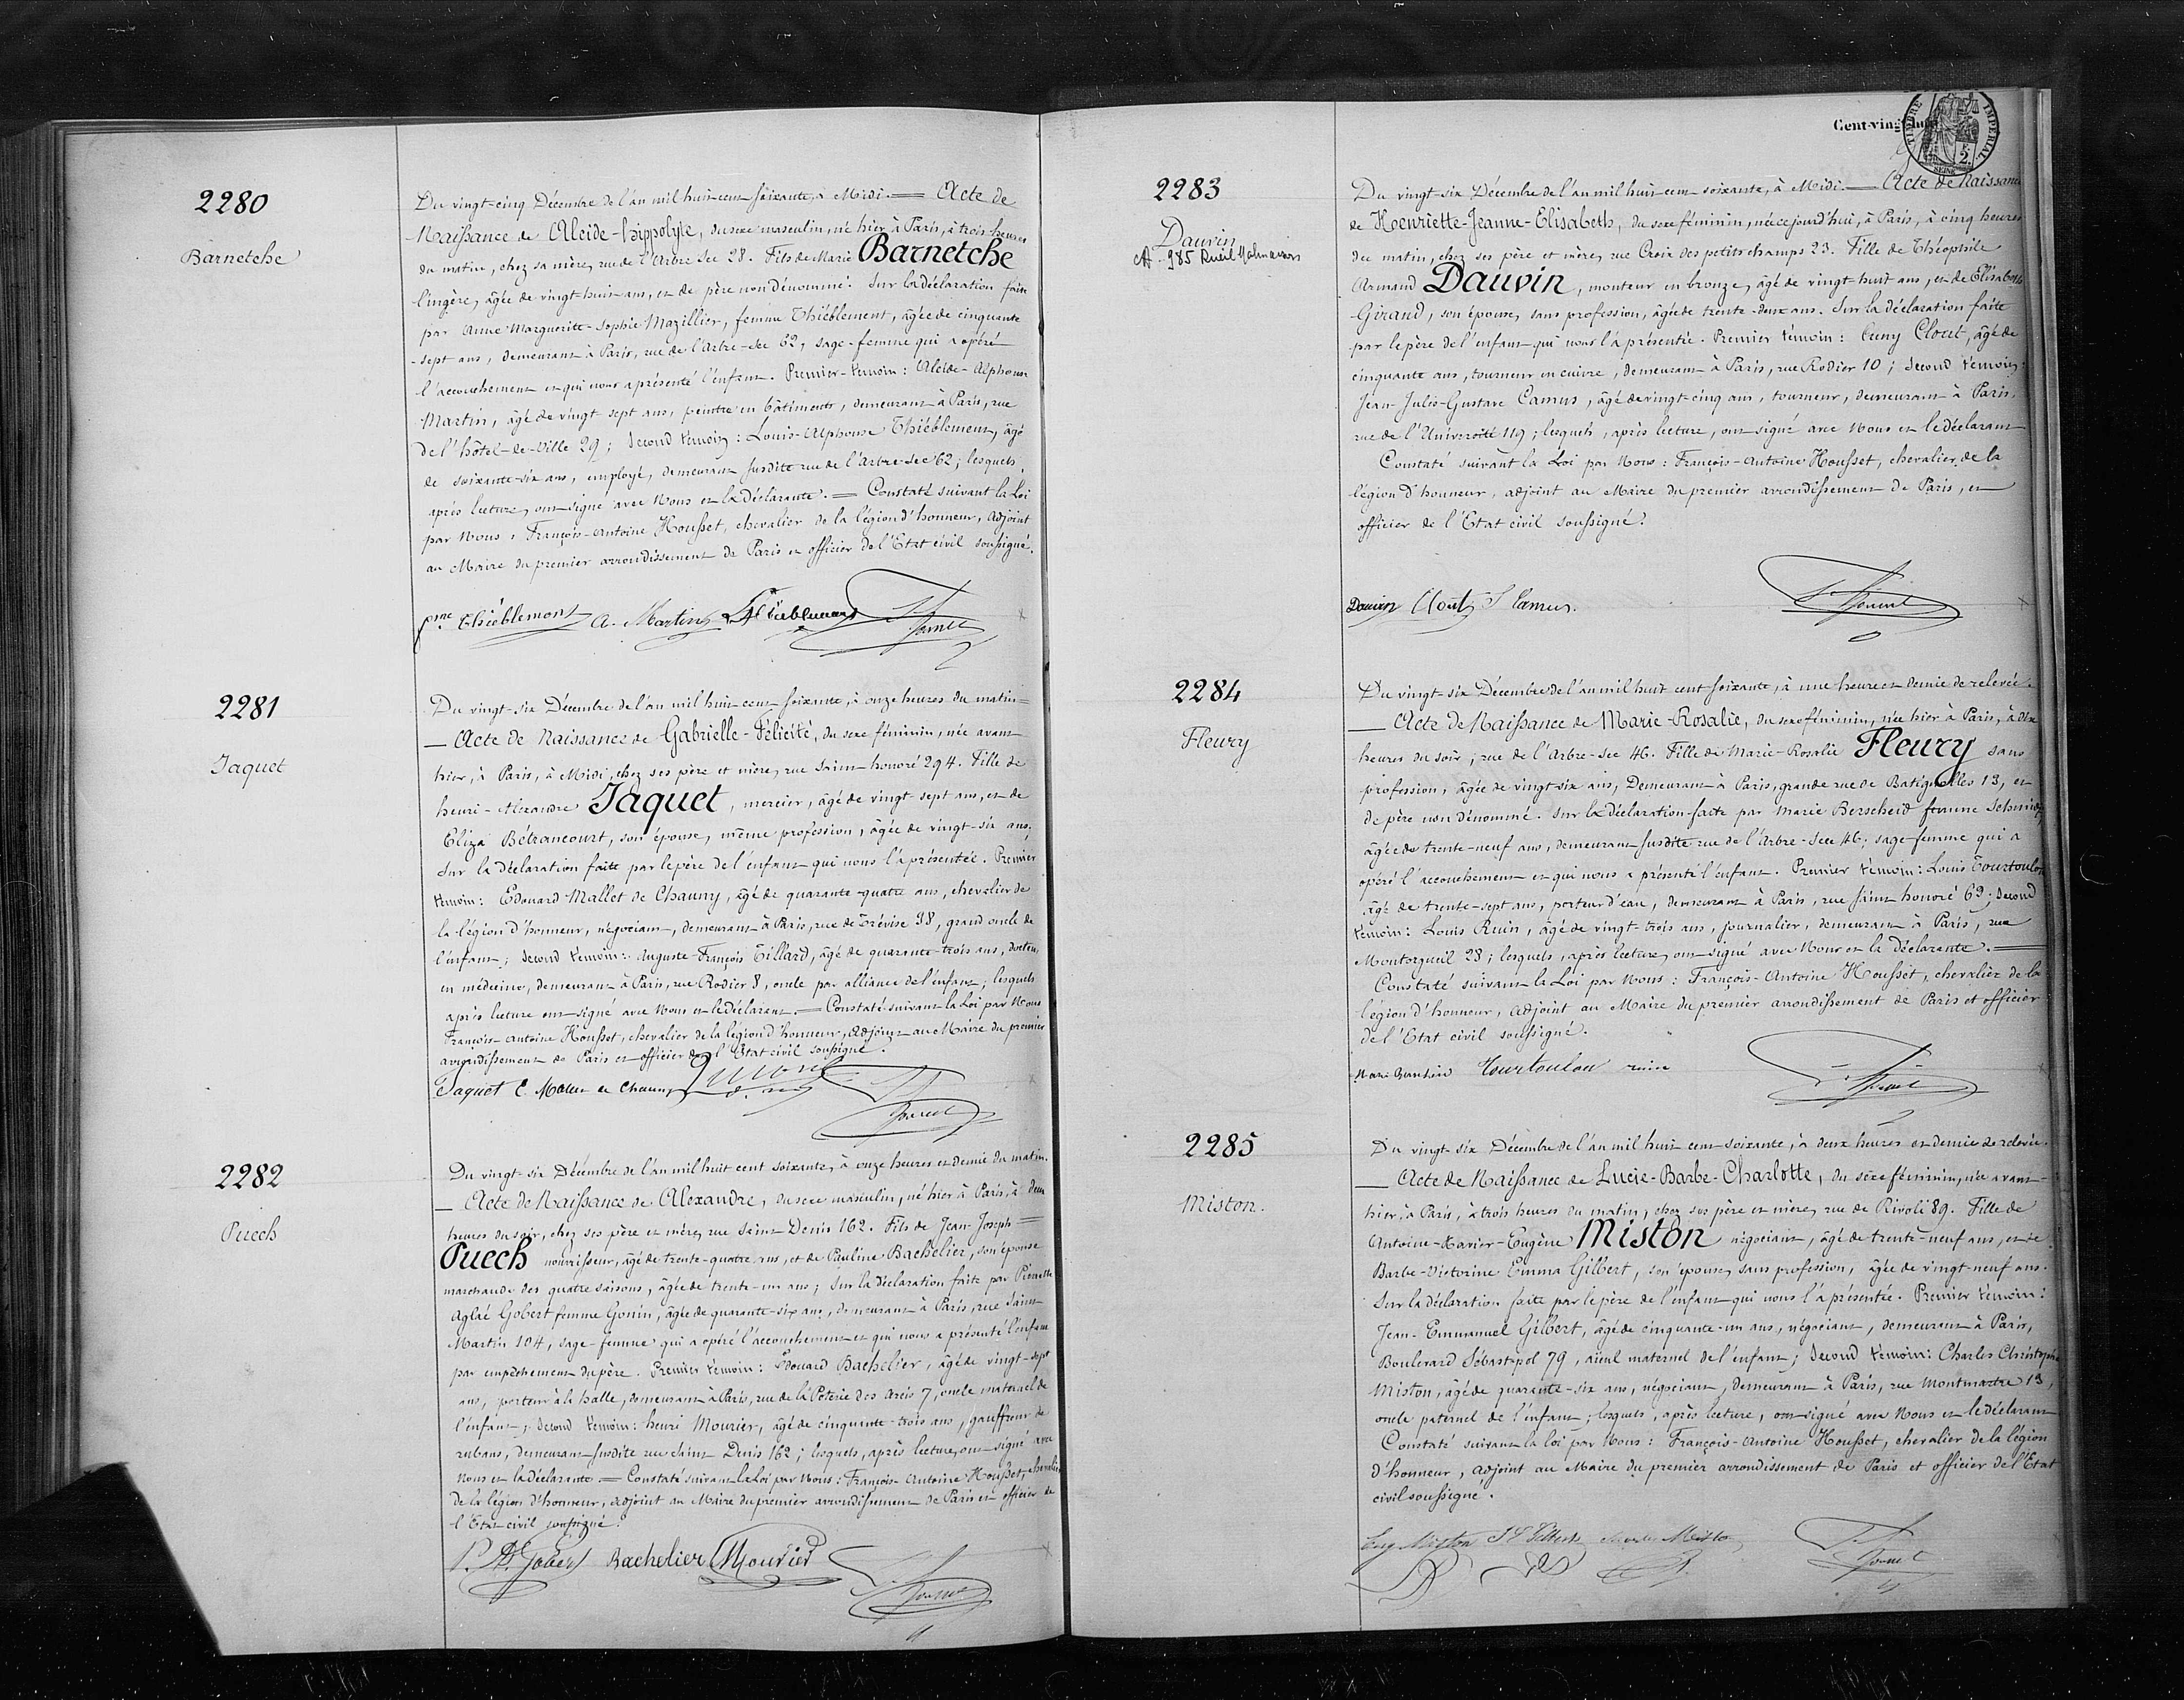 2280
Barnetche
Du vingt-cinq Décembre de l'an mil huit cent soixante, à Midi. — Acte de
Naissance de Alcide-hippolyte, du sexe masculin, né hier à Paris, à trois heures
du matin, chez sa mère, rue de l'Arbre Sec 28. Fils de Marie Barnetche
lingère, âgée de vingt-huit ans, et de père non dénommé. Sur la déclaration faite
par Anne Marguerite-Sophie Mazillier, femme Thiéblement, âgée de cinquante
-sept ans, demeurant à Paris, rue de l'Arbre-Sec 62, sage-femme qui a opéré
l'accouchement et qui nous a présenté l'enfant. Premier-témoin : Alcide-Alphonse
Martin, âgé de vingt sept ans, peintre en bâtiments, demeurant à Paris, rue
de l'hôtel-de-Ville 29 ; Second témoin : Louis-Alphonse Thiéblement, âgé
de soixante-six ans, employé, demeurant susdite rue de l'Arbre-Sec 62 ; lesquels,
après lecture, ont signé avec Nous et la déclarante. — Constaté suivant la Loi
par Nous : François-Antoine Housset, chevalier de la légion d'honneur, Adjoint
au Maire du premier arrondissement de Paris et officier de l'Etat civil soussigné.
fme Thiéblemont A. Martin
2281
Jaquet
Du vingt-six Décembre de l'an mil huit cent soixante, à onze heures du matin —
— Acte de Naissance de Gabrielle-Félicité, du sexe féminin, née avant
hier, à Paris, à Midi, chez ses père et mère, rue Saint honoré 294. Fille de
henri-Alexandre Jaquet, mercier, âgé de vingt-sept ans, et de
Eliza Bétrancourt, son épouse, même profession, âgée de vingt-six ans.
Sur la déclaration faite par le père de l'enfant qui nous l'a présentée. Premier
témoin : Edouard Mallet de Chauny, âgé de quarante-quatre ans, chevalier de
la légion d'honneur, négociant, demeurant à Paris, rue de Trévise 38, grand oncle de
l'enfant ; Second témoin : Auguste-François Tillard, âgé de quarante-trois ans, docteur
en médecine, demeurant à Paris, rue Rodier 8, oncle par alliance de l'enfant ; lesquels
après lecture ont signé avec Nous et le déclarant. — Constaté suivant la Loi par Nous
François-Antoine Housset, chevalier de la légion d'honneur, Adjoint au Maire du premier
arrondissement de Paris et officier de l'Etat civil soussigné.
Jaquet E. Mallet de Chauny
2282
Puech
Du vingt-six Décembre de l'an mil huit cent soixante, à onze heures et demie du matin.
— Acte de Naissance de Alexandre, du sexe masculin, né hier à Paris, à deux
heures du soir, chez ses père et mère, rue Saint Denis 162. Fils de Jean-Joseph —
Puech nourrisseur, âgé de trente-quatre ans, et de Pauline Bachelier, son épouse
marchande des quatre saisons, âgée de trente-un ans ; Sur la déclaration faite par Pierrette
Aglaé Gobert femme Gonin, âgée de quarante-six ans, demeurant à Paris, rue Saint
Martin 104, sage-femme qui a opéré l'accouchement et qui nous a présenté l'enfant
par empêchement du père. Premier témoin : Edouard Bachelier, âgé de vingt-sept
ans, porteur à la halle, demeurant à Paris, rue de la Poterie des Arcis 7, oncle maternel de
l'enfant ; Second témoin : henri Mourier, âgé de cinquante-trois ans, gauffreur de
rubans, demeurant susdite rue Saint Denis 162 ; lesquels, après lecture, ont signé avec
Nous et la déclarante — Constaté suivant la Loi par Nous : François-Antoine Housset, chevalier
de la légion d'honneur, Adjoint au Maire du premier arrondissement de Paris et officier de
l'Etat civil soussigné.
Bachelier Mourier
Cent-vingt-huit
TIMBRE IMPERIAL
SEINE
2283
Dauvin
A. 985 Rueil Malmaison
Du vingt-six Décembre de l'an mil huit cent soixante, à Midi. — Acte de Naissance
de Henriette-Jeanne-Elisabeth, du sexe féminin, née cejourd'hui, à Paris, à cinq heures
du matin, chez ses père et mère, rue Croix des petits champs 23. Fille de Théophile
Armand Dauvin, monteur en bronze, âgé de vingt-huit ans, et de Elisabeth
Girand, son épouse, sans profession, âgée de trente-deux ans. Sur la déclaration faite
par le père de l'enfant qui nous l'a présentée. Premier témoin : Cuny Clout, âgé de
cinquante ans, tourneur en cuivre, demeurant à Paris, rue Rodier 10 ; Second témoin :
Jean-Jules-Gustave Camus, âgé de vingt-cinq ans, tourneur, demeurant à Paris,
rue de l'Université 119 ; lesquels, après lecture, ont signé avec Nous et le déclarant
Constaté suivant la Loi par Nous : François-Antoine Housset, chevalier de la
légion d'honneur, adjoint au Maire du premier arrondissement de Paris, et
officier de l'Etat civil soussigné.
Dauvin Clout Camus.
2284
Fleury
Du vingt-six Décembre de l'an mil huit cent soixante, à une heure et demie de relevée.
— Acte de Naissance de Marie-Rosalie, du sexe féminin, née hier à Paris, à dix
heures du soir, rue de l'Arbre-Sec 46. Fille de Marie-Rosalie Fleury sans
profession, âgée de vingt-six ans, demeurant à Paris, grande rue de Batignolles 13, et
de père non dénommé. Sur la déclaration faite par Marie Berscheid femme Schmidt,
âgée de trente-neuf ans, demeurant susdite rue de l'Arbre-Sec 46, sage-femme qui a
opéré l'accouchement et qui nous a présenté l'enfant. Premier témoin : Louis Tourtoulon
âgé de trente-sept ans, porteur d'eau, demeurant à Paris, rue saint honoré 69 ; Second
témoin : Louis Ruin, âgé de vingt-trois ans, journalier, demeurant à Paris, rue
Montorgueil 28 ; lesquels, après lecture, ont signé avec Nous et la déclarante. —
Constaté suivant la Loi par Nous : François-Antoine Housset, chevalier de la
légion d'honneur, Adjoint au Maire du premier arrondissement de Paris et officier
de l'Etat civil soussigné.
Tourtoulon ruin
2285
Miston.
Du vingt-six Décembre de l'an mil huit cent soixante, à deux heures et demie de relevée.
— Acte de Naissance de Lucie-Barbe-Charlotte, du sexe féminin, née avant-
hier, à Paris, à trois heures du matin, chez ses père et mère, rue de Rivoli 89. Fille de
Antoine-Xavier-Eugène Miston négociant, âgé de trente-neuf ans, et de
Barbe-Victorine Emma Gilbert, son épouse, sans profession, âgée de vingt-neuf ans.
Sur la déclaration faite par le père de l'enfant qui nous l'a présentée. Premier témoin :
Jean-Emmanuel Gilbert, âgé de cinquante-un ans, négociant, demeurant à Paris,
Boulevard Sébastopol 79, aïeul maternel de l'enfant ; Second témoin : Charles Christophe
Miston, âgé de quarante-six ans, négociant, demeurant à Paris, rue Montmartre 13,
oncle paternel de l'enfant ; lesquels, après lecture, ont signé avec Nous et le déclarant
Constaté suivant la loi par Nous : François-Antoine Housset, chevalier de la légion
d'honneur, adjoint au Maire du premier arrondissement de Paris et officier de l'Etat
civil soussigné.
Eug Miston